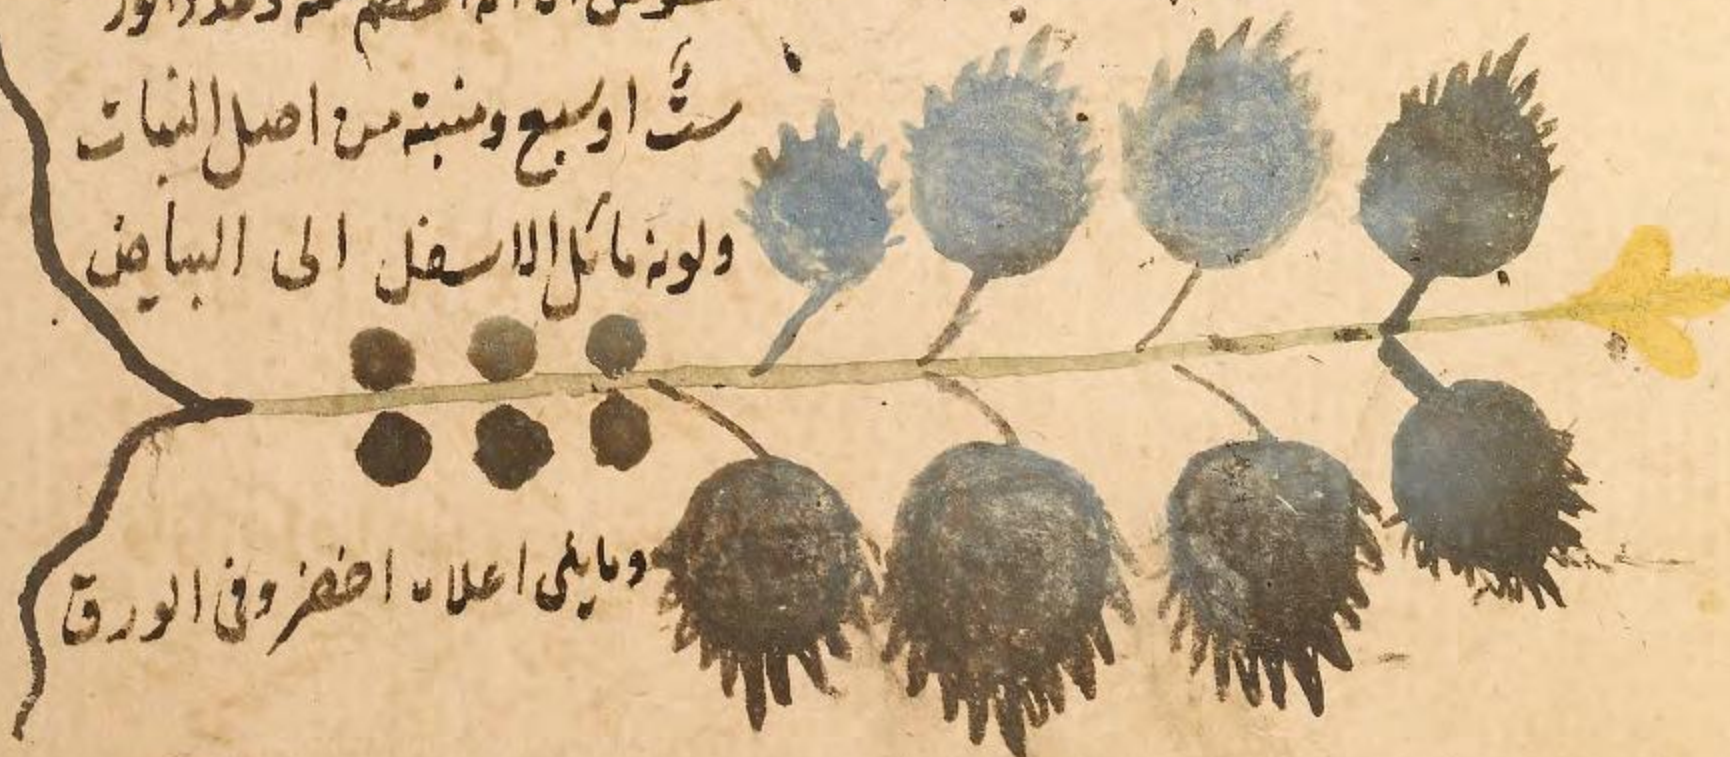 ستّ او سبع ومنبته من اصل النبات
ولونه مائل الاسفل الى البياض
وما يلى اعلاه اخضر وفى الورق